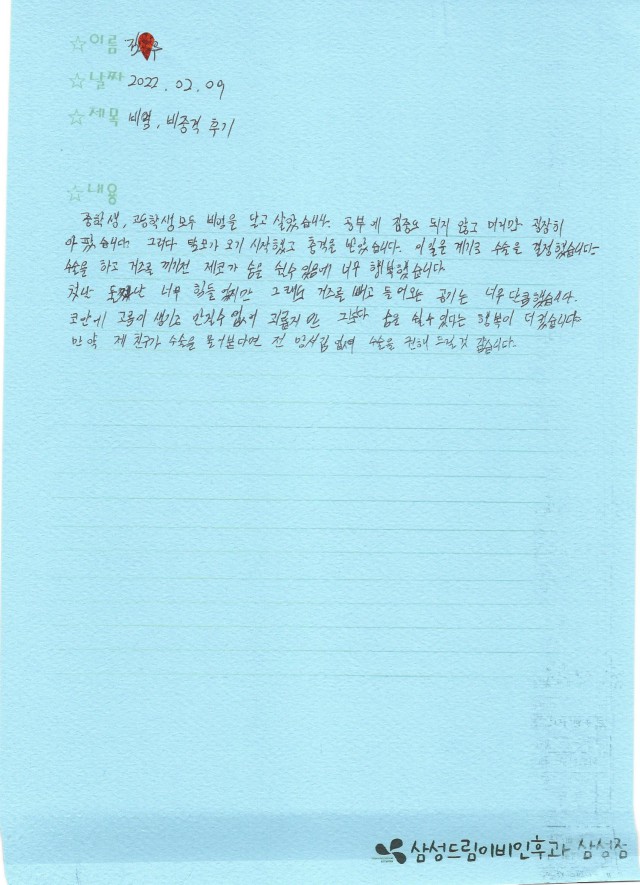 ☆이름
☆날짜 2022.02.09
☆제목 비염, 비중격 후기
☆내용
중학생, 고등학생 모두 비염을 달고 살았습니다. 공부에 집중도 되지 않고 머리만 굉장히
아팠습니다. 그러다 탈모가 오기 시작했고 충격을 받았습니다. 이 일을 계기로 수술을 결정했습니다.
수술을 하고 거즈를 끼기전 제코가 숨을 쉴수 있음에 너무 행복했습니다.
첫난 너무 힘들었지만 그래도 거즈를 빼고 들어오는 공기는 너무 단급했습니다.
코안에 고름이 생기고 만질수 없어 괴롭지만 그보다 숨을 쉴수 있다는 행복이 더 컸습니다.
만약 제 친구가 수술을 물어본다면 전 망서림 없이 수술을 권해 드릴것 같습니다.
삼성드림이비인후과 삼성점